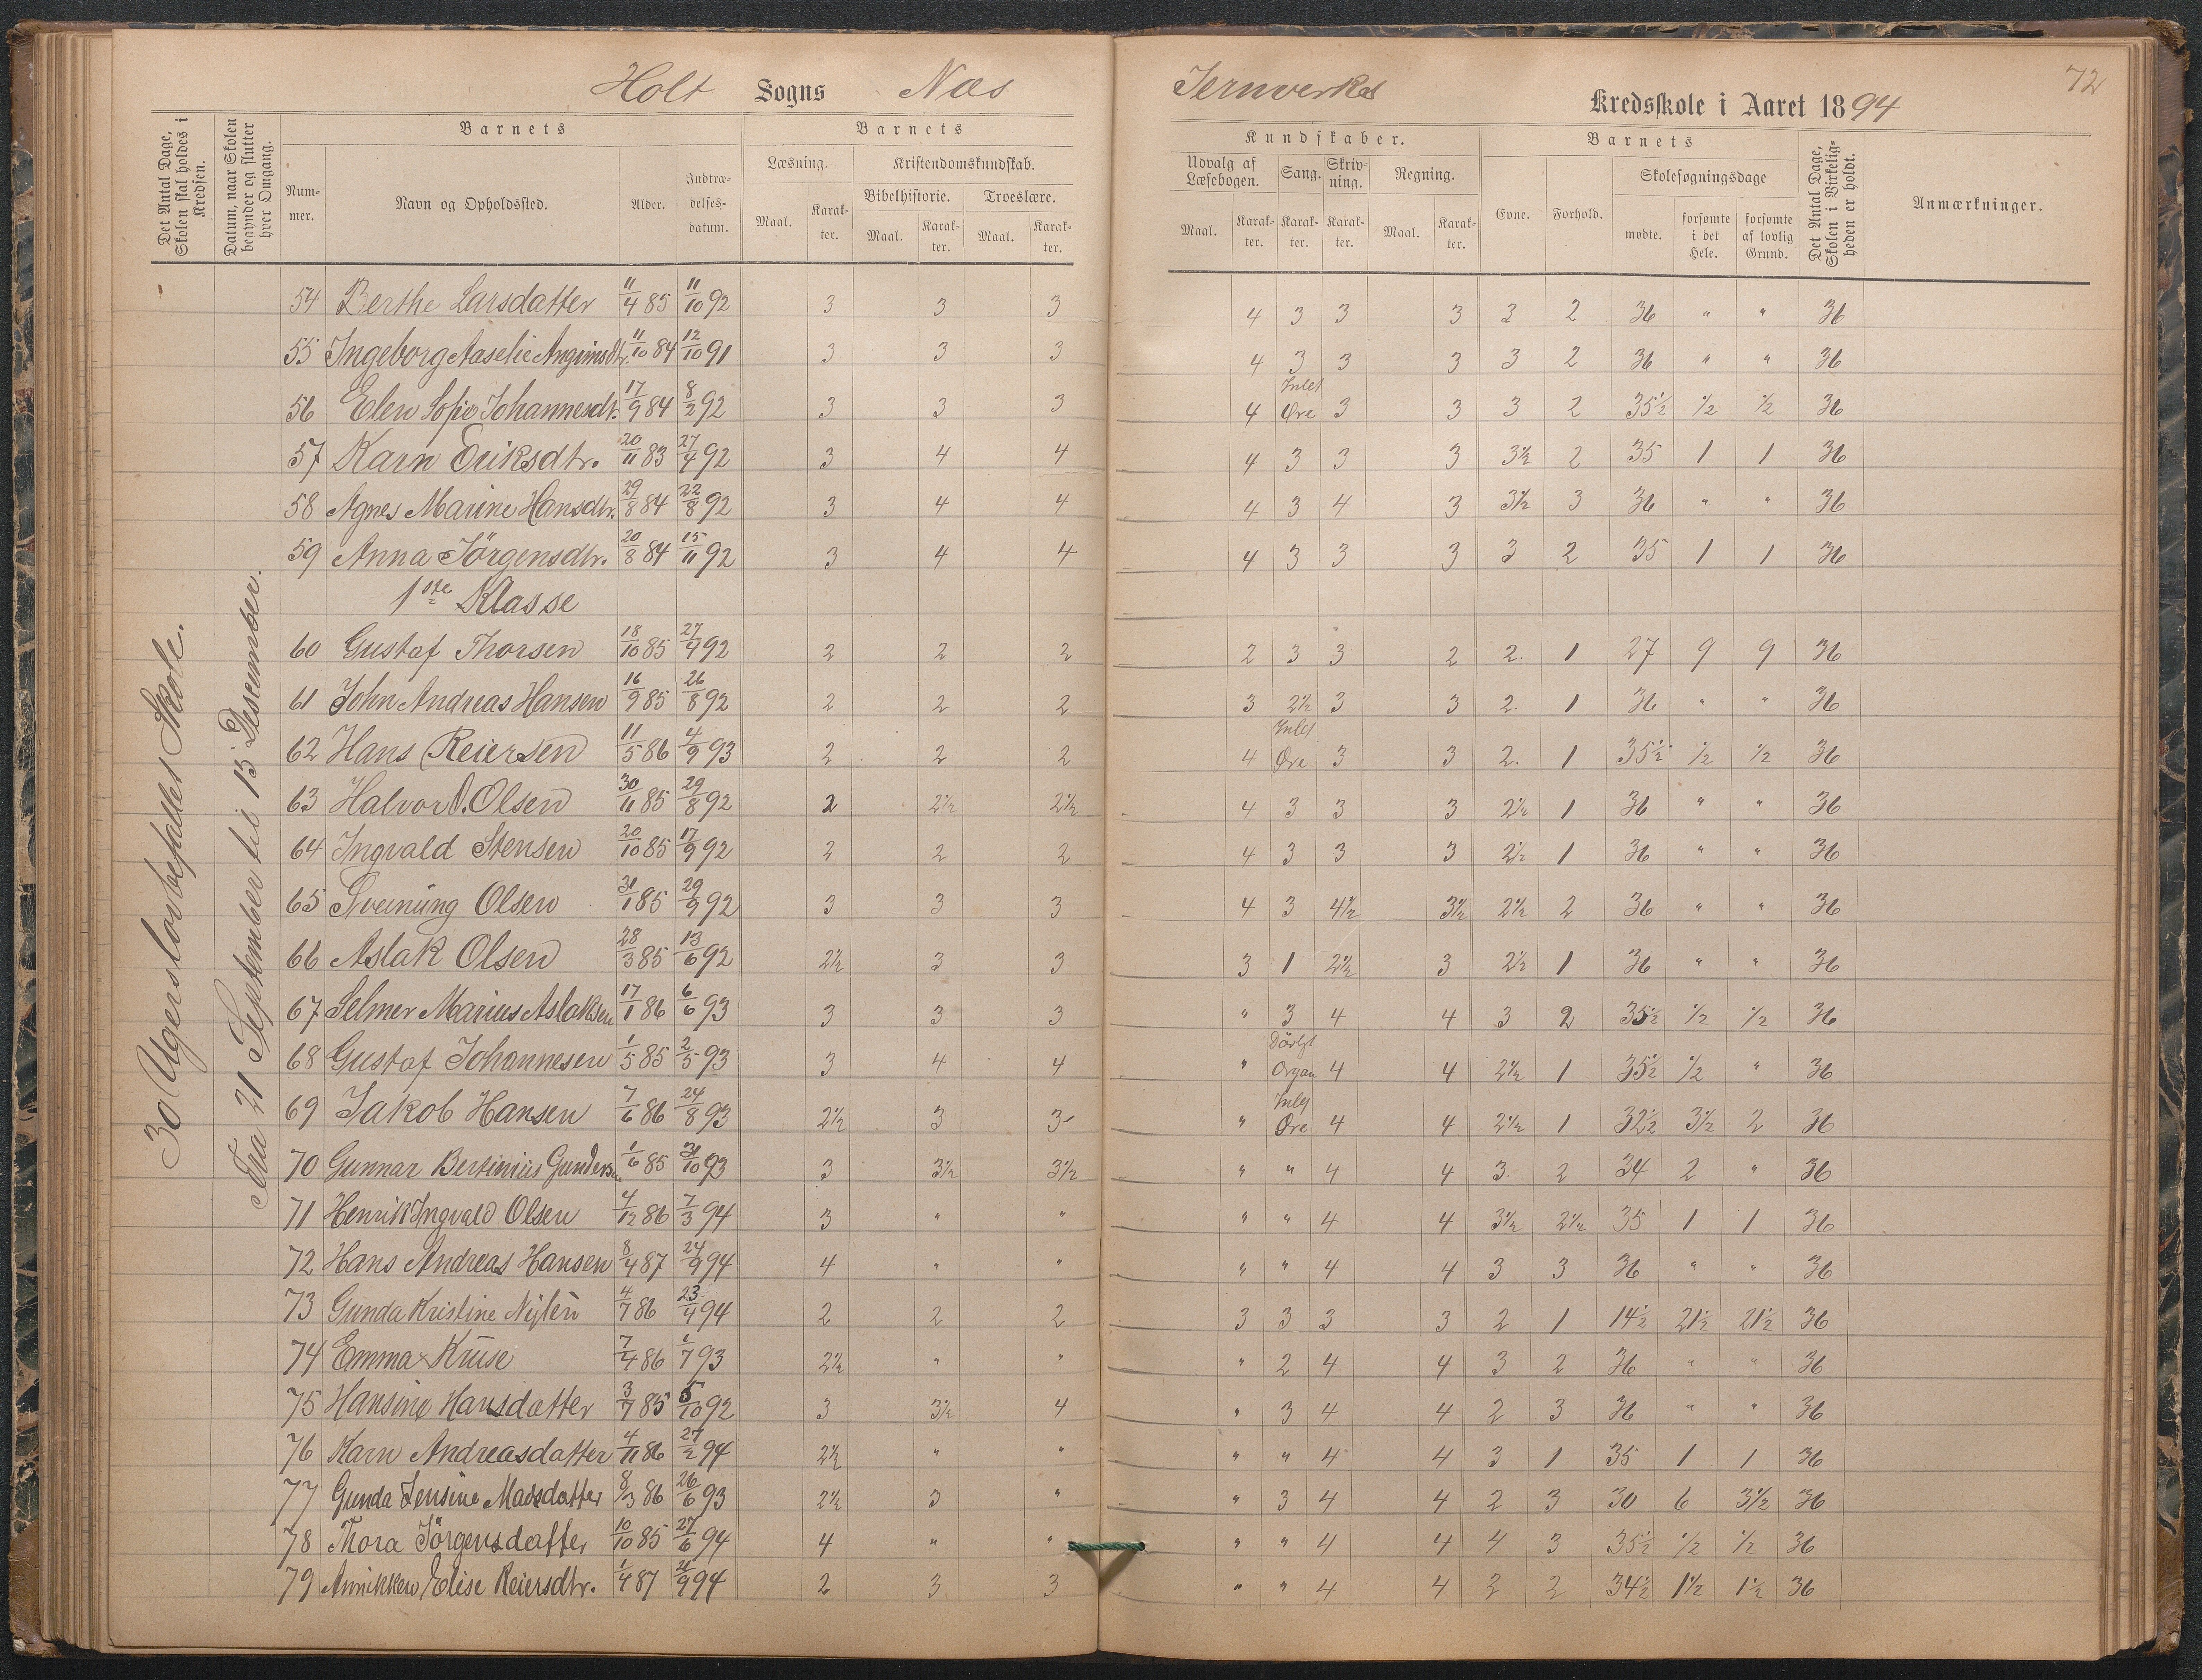 Holt Sogns Næs Jernverks Kredsskole i Aaret 1894
72
Det Antal Dage, Skolen skal holdes i Kredsen.
Datum, naar Skolen begynder og slutter hver Omgang.
Barnets
Nummer.
Navn og Opholdssted.
Alder.
Indtrædelses-datum.
Barnets
Læsning.
Maal.
Karakter.
Kristendomskundskab.
Bibelhistorie.
Maal.
Karakter.
Troeslære.
Maal.
Karakter.
Kundskaber.
Udvalg af Læsebogen.
Maal.
Karakter.
Sang.
Karakter.
Skrivning.
Karakter.
Regning.
Maal.
Karakter.
Barnets
Evne.
Forhold.
Skolesøgningsdage
mødte.
forsømte i det Hele.
forsømte af lovlig Grund.
Det Antal Dage, Skolen i Virkeligheden er holdt.
Anmærkninger.
30 Ugers lovbefalet Skole.
Fra 21 September til 15 Desember.
54 Berthe Larsdatter 11/4 85 11/10 92 3 3 3 4 3 3 3 3 2 36 " " 36
55 Ingeborg Aaselie Angrimsdtr. 11/10 84 12/10 91 3 3 3 4 3 3 3 3 2 36 " " 36
56 Elen Sofie Johannesdt. 17/9 84 8/2 92 3 3 3 4 Intet Øre 3 3 3 2 35½ ½ ½ 36
57 Karn Eriksdtr. 20/11 83 27/4 92 3 4 4 4 3 3 3 3½ 2 35 1 1 36
58 Agnes Marine Hansdtr. 29/8 84 22/8 92 3 4 4 4 3 4 3 3½ 3 36 " " 36
59 Anna Jörgensdtr. 20/8 84 15/11 92 3 4 4 4 3 3 3 3 2 35 1 1 36
1ste Klasse
60 Gustaf Thorsen 18/10 85 27/4 92 2 2 2 2 3 3 2 2. 1 27 9 9 36
61 John Andreas Hansen 16/9 85 26/8 92 2 2 2 3 2½ 3 3 2. 1 36 " " 36
62 Hans Reiersen 11/5 86 4/9 93 2 2 2 4 Intet Øre 3 3 2. 1 35½ ½ ½ 36
63 Halvor O. Olsen 30/11 85 29/8 92 2 2½ 2½ 4 3 3 3 2½ 1 36 " " 36
64 Ingvald Stensen 20/10 85 17/9 92 2 2 2 4 3 3 3 2½ 1 36 " " 36
65 Sveinung Olsen 31/1 85 29/9 92 3 3 3 4 3 4½ 3½ 2½ 2 36 " " 36
66 Aslak Olsen 28/3 85 13/6 92 2½ 3 3 3 1 2½ 3 2½ 1 36 " " 36
67 Selmer Marius Aslaksen 17/1 86 6/6 93 3 3 3 " 3 4 4 3 2 35½ ½ ½ 36
68 Gustaf Johannesen 1/5 85 2/5 93 3 4 4 " Dårlgt Organ 4 4 2½ 1 35½ ½ " 36
69 Jakob Hansen 7/6 86 24/8 93 2½ 3 3 " Intet Øre 4 4 2½ 1 32½ 3½ 2 36
70 Gunnar Bertinius Gundersen 1/6 85 31/10 93 3 3½ 3½ " " 4 4 3. 2 34 2 " 36
71 Henrik Ingvald Olsen 4/12 86 7/3 94 3 " " " " 4 4 3½ 2½ 35 1 1 36
72 Hans Andreas Hansen 8/4 87 24/9 94 4 " " " " 4 4 3 3 36 " " 36
73 Gunda Kristine Nylén 4/7 86 23/4 94 2 2 2 3 3 3 3 2 1 14½ 21½ 21½ 36
74 Emma Kruse 7/4 86 1/7 93 2½ " " " 2 4 4 3 2 36 " " 36
75 Hansine Hansdatter 3/7 85 5/10 92 3 3½ 4 " 3 4 4 2 3 36 " " 36
76 Karn Andreasdatter 4/11 86 27/2 94 2½ " " " " 4 4 3 1 35 1 1 36
77 Gunda Jensine Madsdatter 8/3 86 26/6 93 2½ 3 " " 3 4 4 2 3 30 6 3½ 36
78 Thora Jörgensdatter 10/10 85 27/6 94 4 " " " " 4 4 4 3 35½ ½ ½ 36
79 Annikken Elise Reiersdtr. 1/4 87 21/9 94 2 3 3 " " 4 4 3 2 34½ 1½ 1½ 36